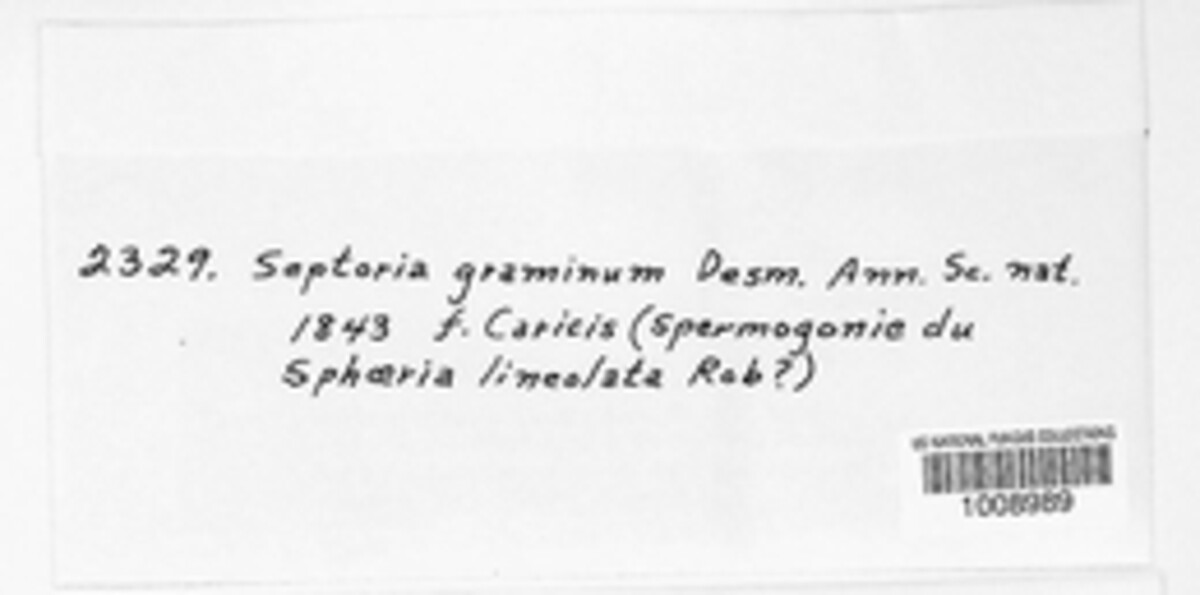 2329. Septoria graminum Desm. Ann. Sc. nat.
1843 f. Caricis (Spermogonie du
Sphæria lineolata Rob?)
US NATIONAL FUNGUS COLLECTIONS
1008989